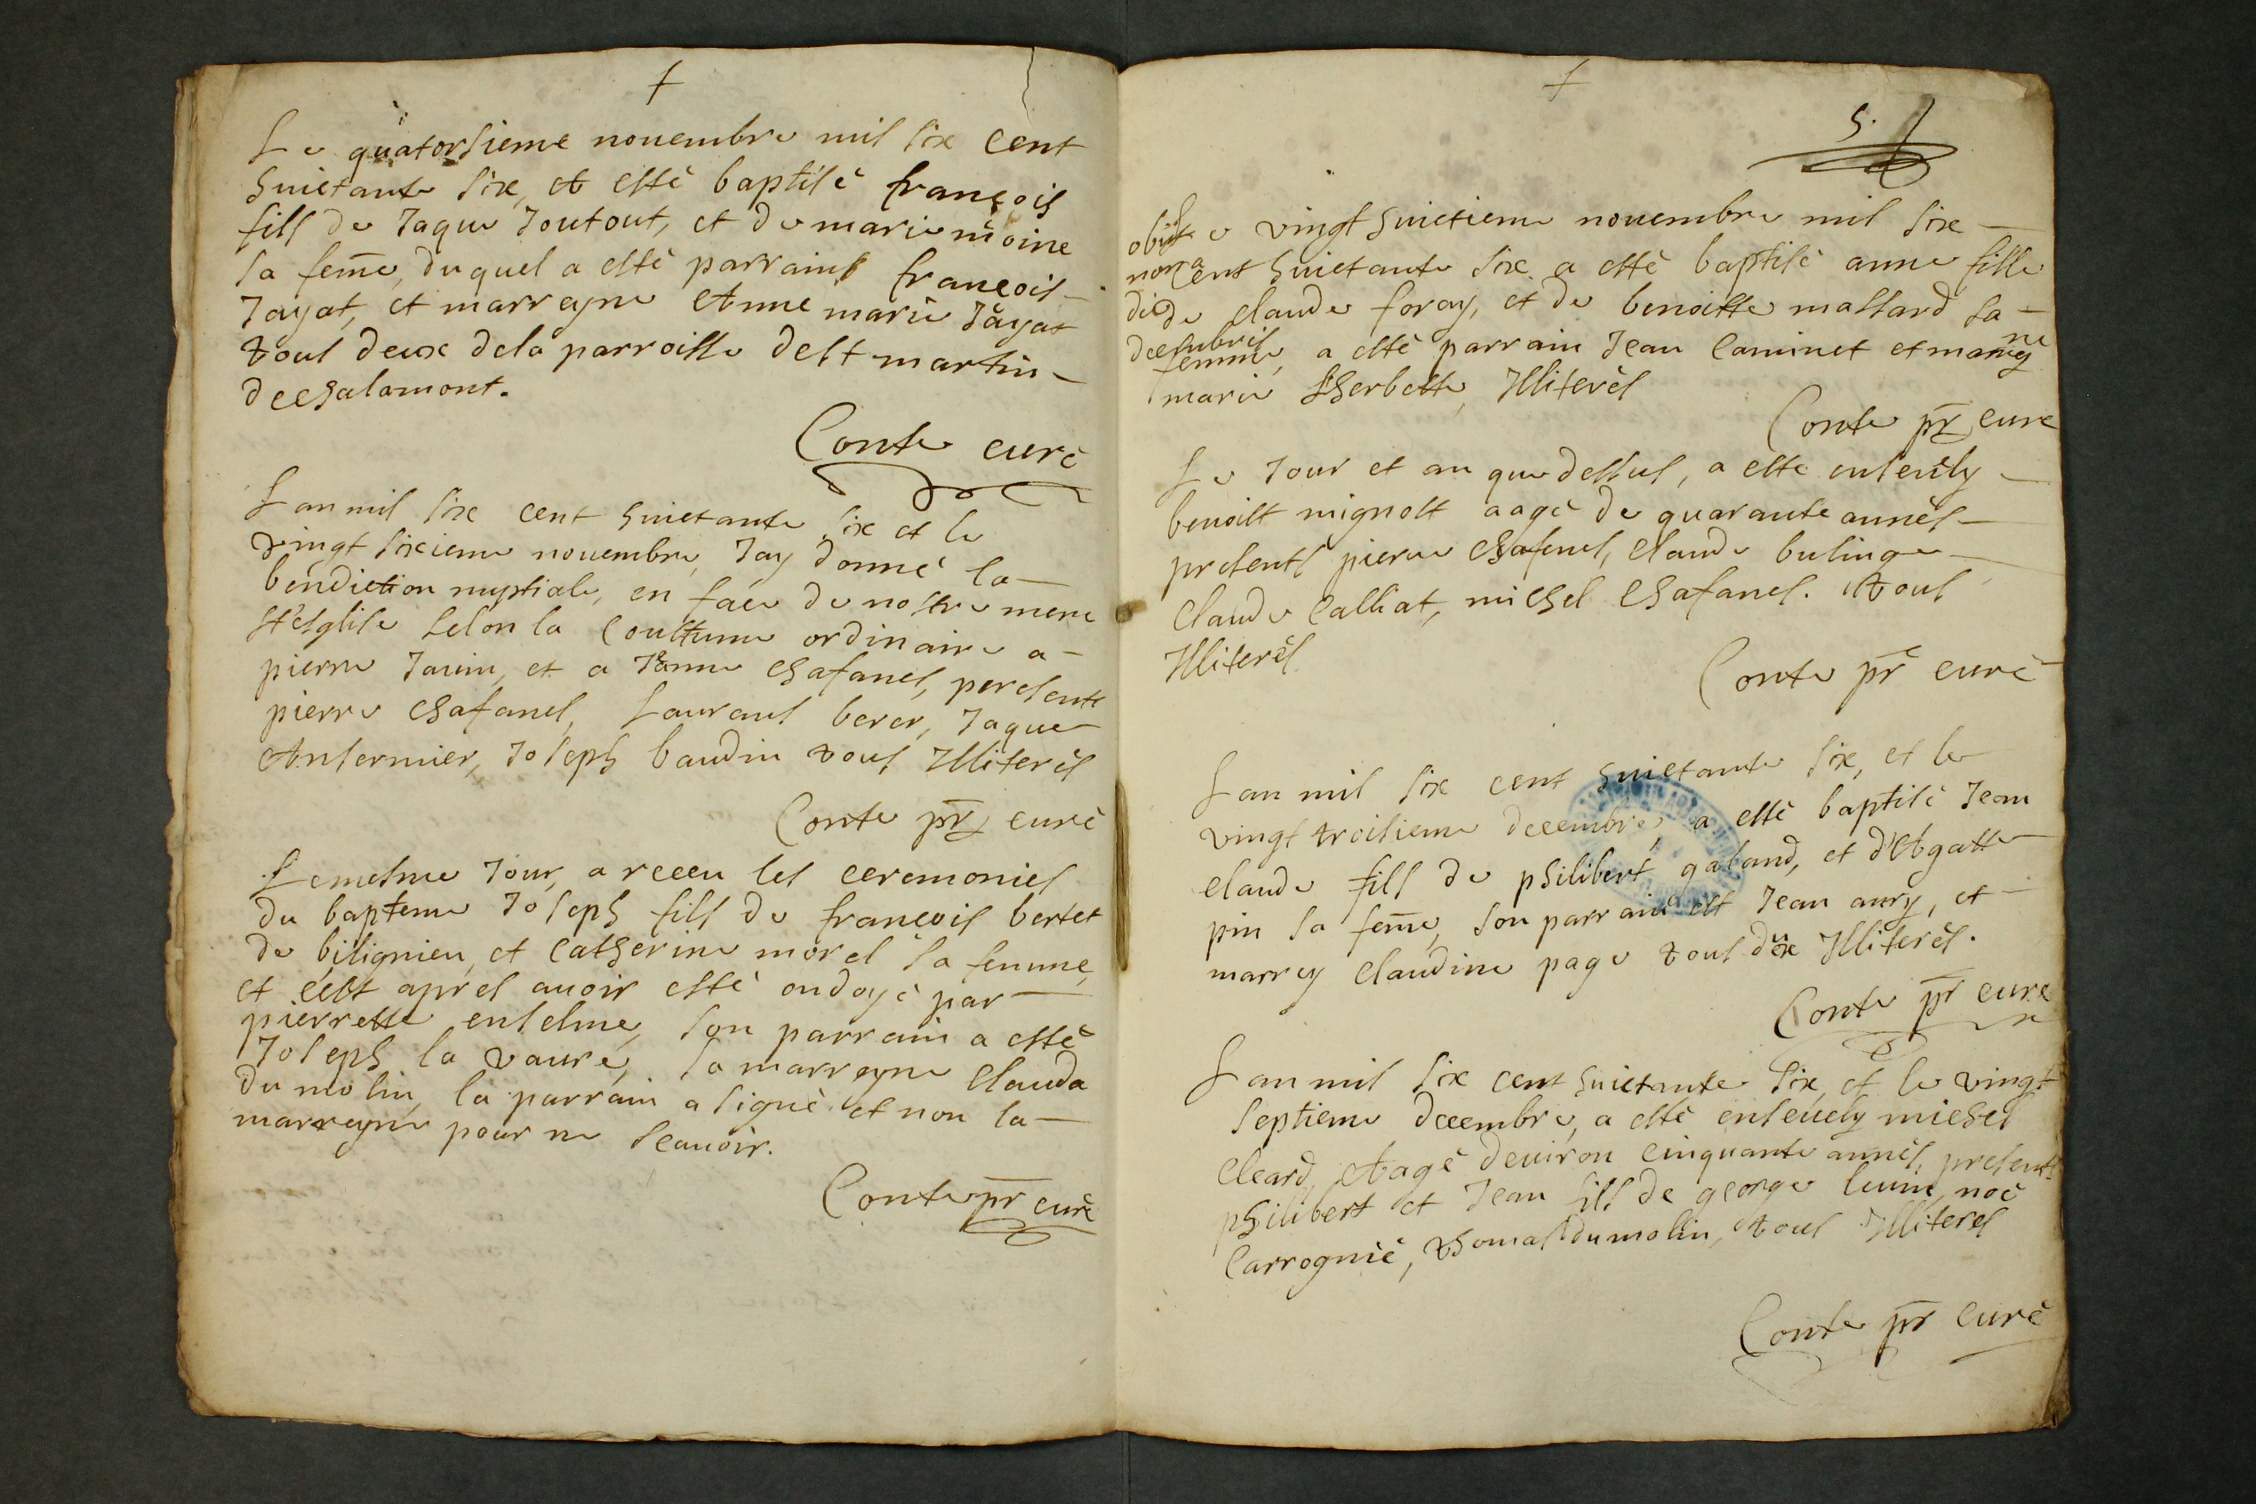 Le quatorsieme nouembre mil six cent
huictante six, A esté baptisé françois
fils de Jaque Joutout, et de marie moine
sa feme, duquel a esté parrains françois
Jayat, et marreyne Anne marie Jayat
tous deux dela parroisse de st martin
de chalamont.
Conte curé
Lan mil six cent huictante six et le
vingt sixieme nouembre, Jay donné la
bendiction nuptiale, en face de nostre mere
st'esglise selon la coustume ordinaire a
pierre Janin, et a Janne chafanel, persents
pierre chafanel, Laurans berer, Jaque
Antermier, Joseph baudin tous Illiterés
Conte pr curé
Le mesme Jour, a receu les ceremonies
du bapteme Joseph fils de françois bertet
de bilignieu, et catherine morel sa femme,
et c'est apres auoir esté ondoyé par
pierrette enselme, son parrain a esté
Joseph la vaure, sa marreyne clauda
du molin, la parrain a signé et non la
marreyne pour ne scauoir.
Conte pr curé
5.
Le vingt huictieme nouembre mil six
cent huictante six a esté baptisé anne fille
de claude foray, et de benoitte massard sa
femme, a esté parrain Jean caminet et marreyne
marie Lherbette, Illiterés
obiit
nona
die
decembris
Conte pr curé
Le Jour et an que dessus, a esté enseuely
benoist mignost aagé de quarante annés
presents pierre chafenel, claude bulinge
claude calliat, michel chafanel. tous
Illiterés
Conte pr curé
Lan mil six cent huictante six, et le
vingt troisieme decembre, a esté baptisé Jean
claude fils de philibert galand, et d'Agatte
pin sa feme, son parrain est Jean aury, et
marrey claudine page tous deux Illiterés.
Conte pr curé
Lan mil six cent huictante six, et le vingt
septieme decembre, a esté enseuely michel
cleard, Aagé denviron cinquante annés, presents
philibert et Jean fils de george leuin, noé
carrognié, thomas dumolin, tous Illiterés
Conte pr curé